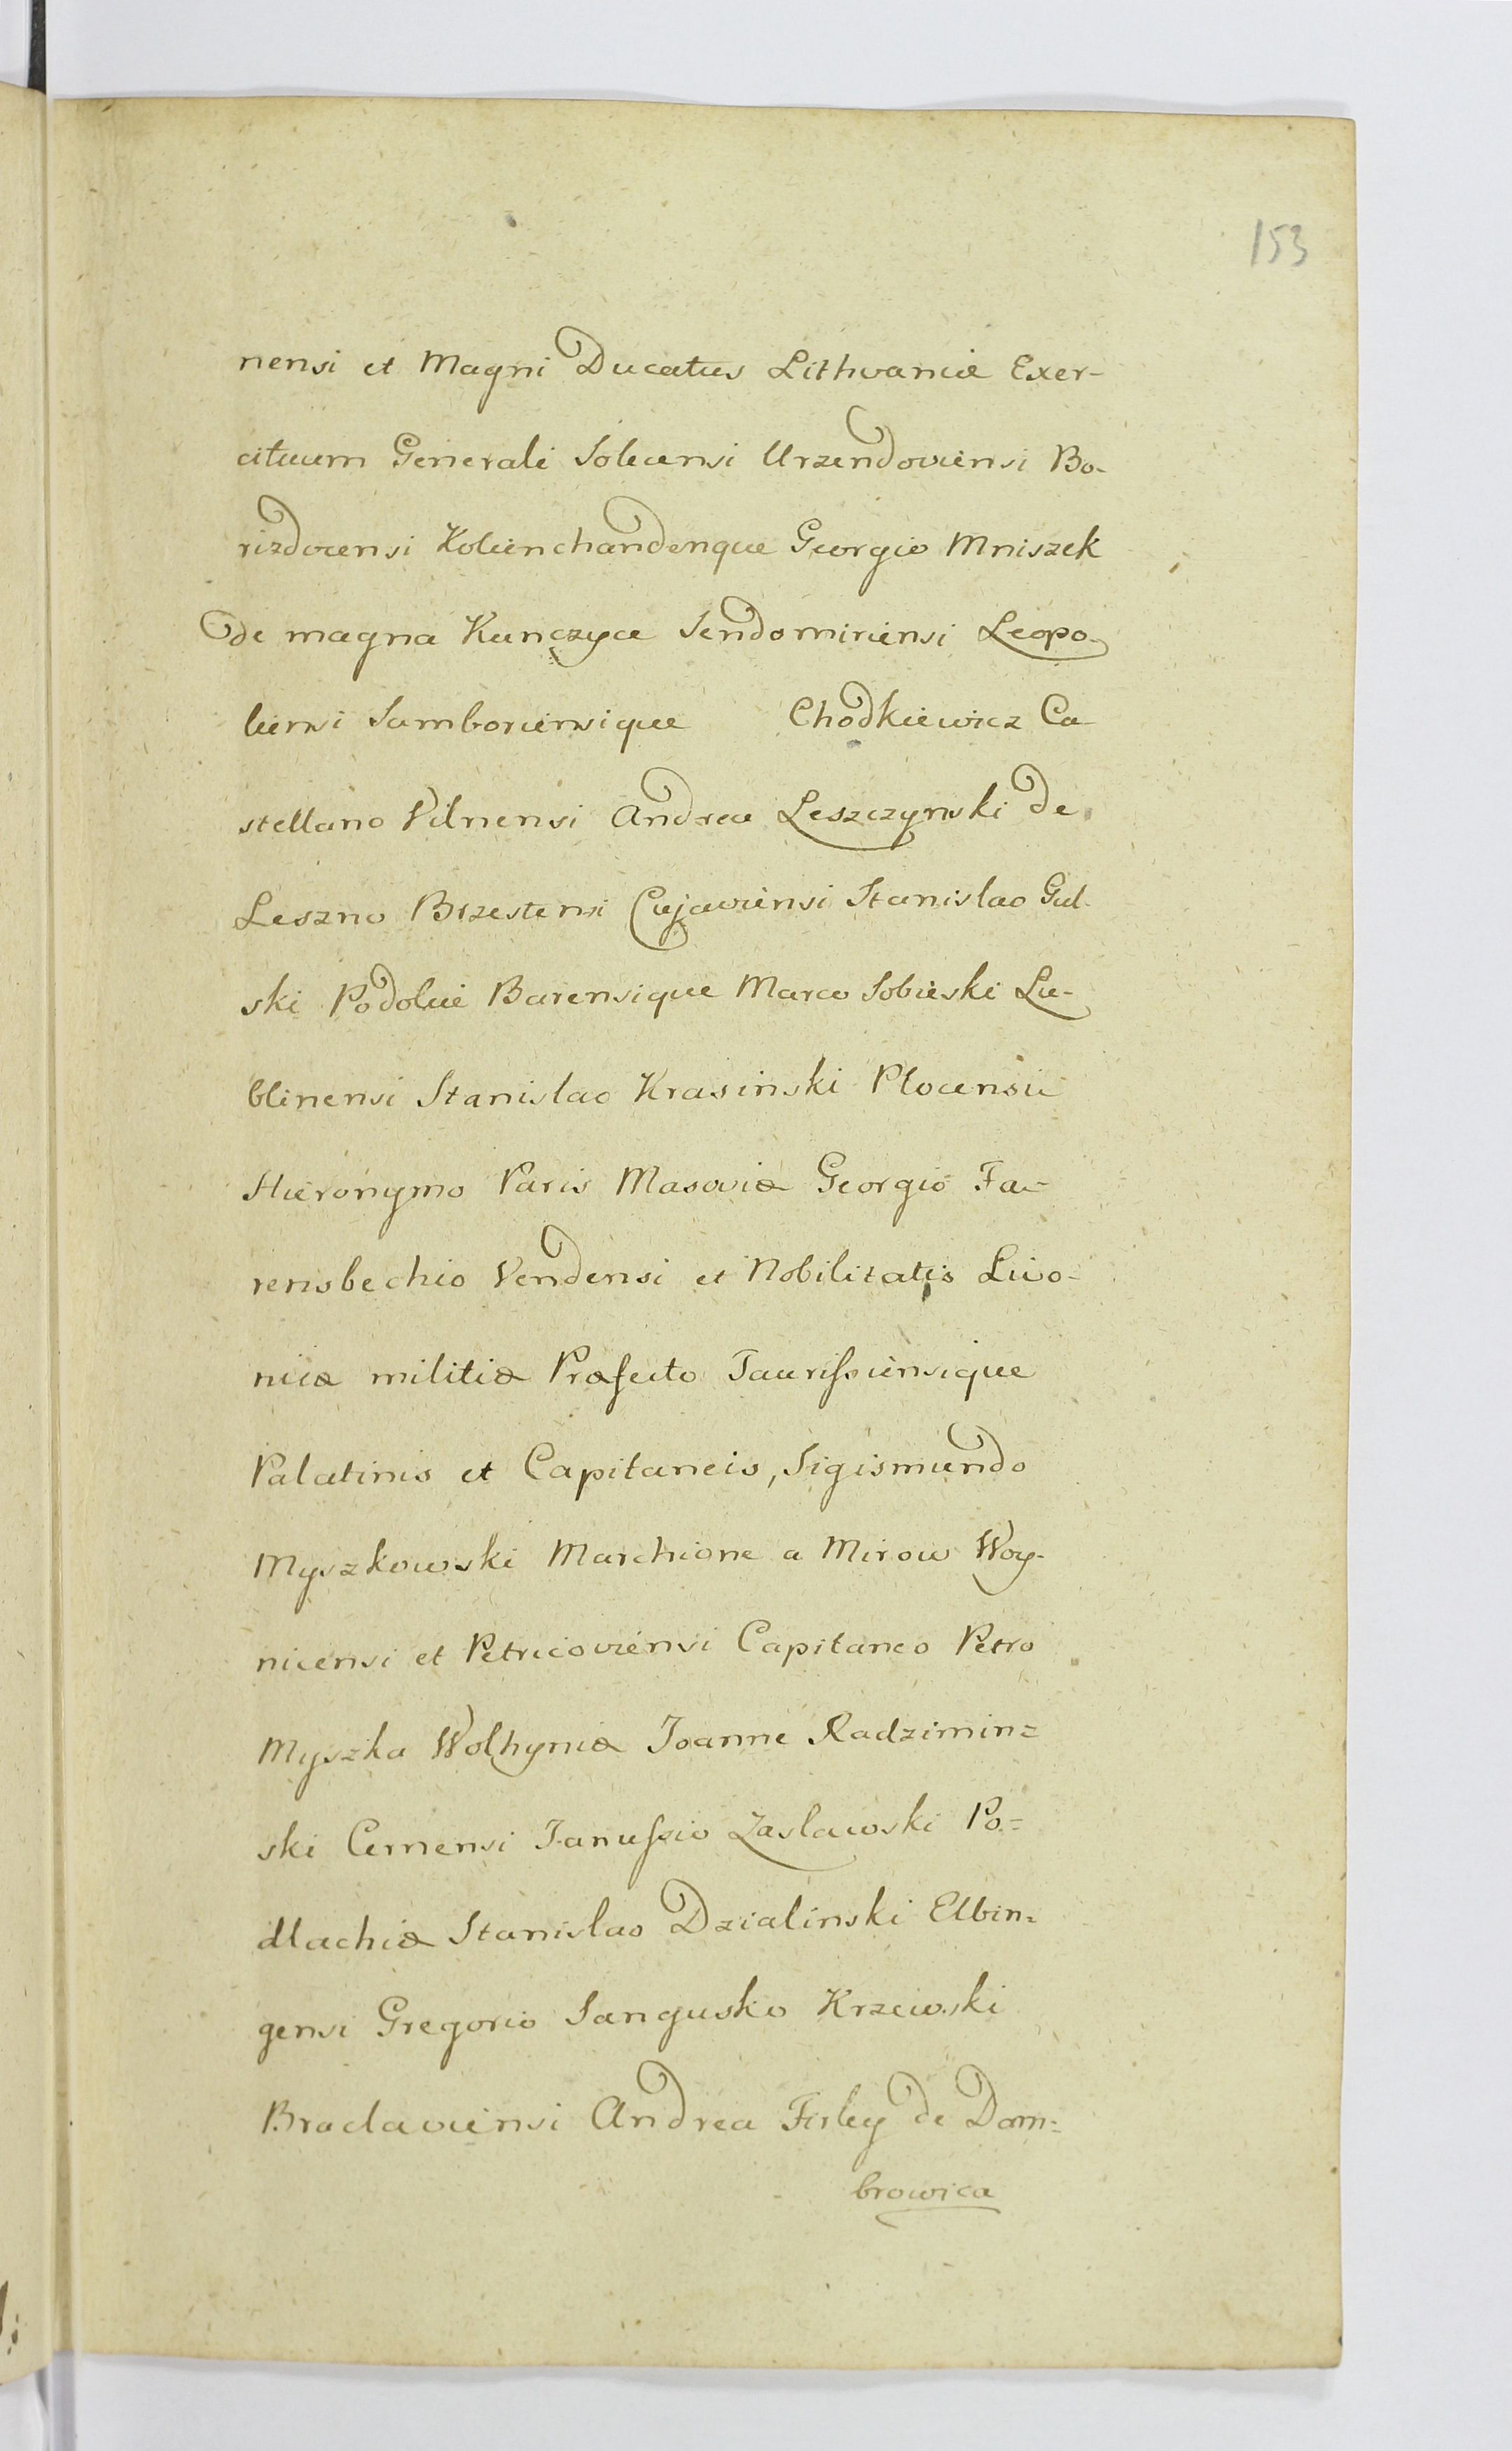 153
nensi et Magni Ducatus Lithvaniæ Exer-
cituum Generali Solecensi Urzendoviensi Bo-
rizdovensi Kolienchandenque Georgio Mniszek
de magna Kunczyce Sendomiriensi Leopo-
liensi Samboriensique Chodkiewicz Ca-
stellano Vilnensi Andrea Leszczynski de
Leszno Brzestensi Cujaviensi Stanislao Gul-
ski Podoliæ Barensique Marco Sobieski Lu-
blinensi Stanislao Krasinski Plocensi
Hieronymo Paris Masoviæ Georgio Fa-
rensbechio Vendensi et Nobilitatis Livo-
niæ militiæ Præfecto Taurissiensique
Palatinis et Capitaneis, Sigismundo
Myszkowski Marchione a Mirow Woy-
nicensi et Petricoviensi Capitaneo Petro
Myszka Wolhyniæ Joanne Radzimin=
ski Cernensi Janussio Zaslawski Po=
dlachiæ Stanislao Dzialinski Elbin=
gensi Gregorio Sangusko Krzewski
Braclaviensi Andrea Firley de Dom=
browica